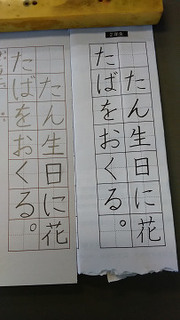 たん生日に花
たばをおくる。
たん生日に花
たばをおくる。